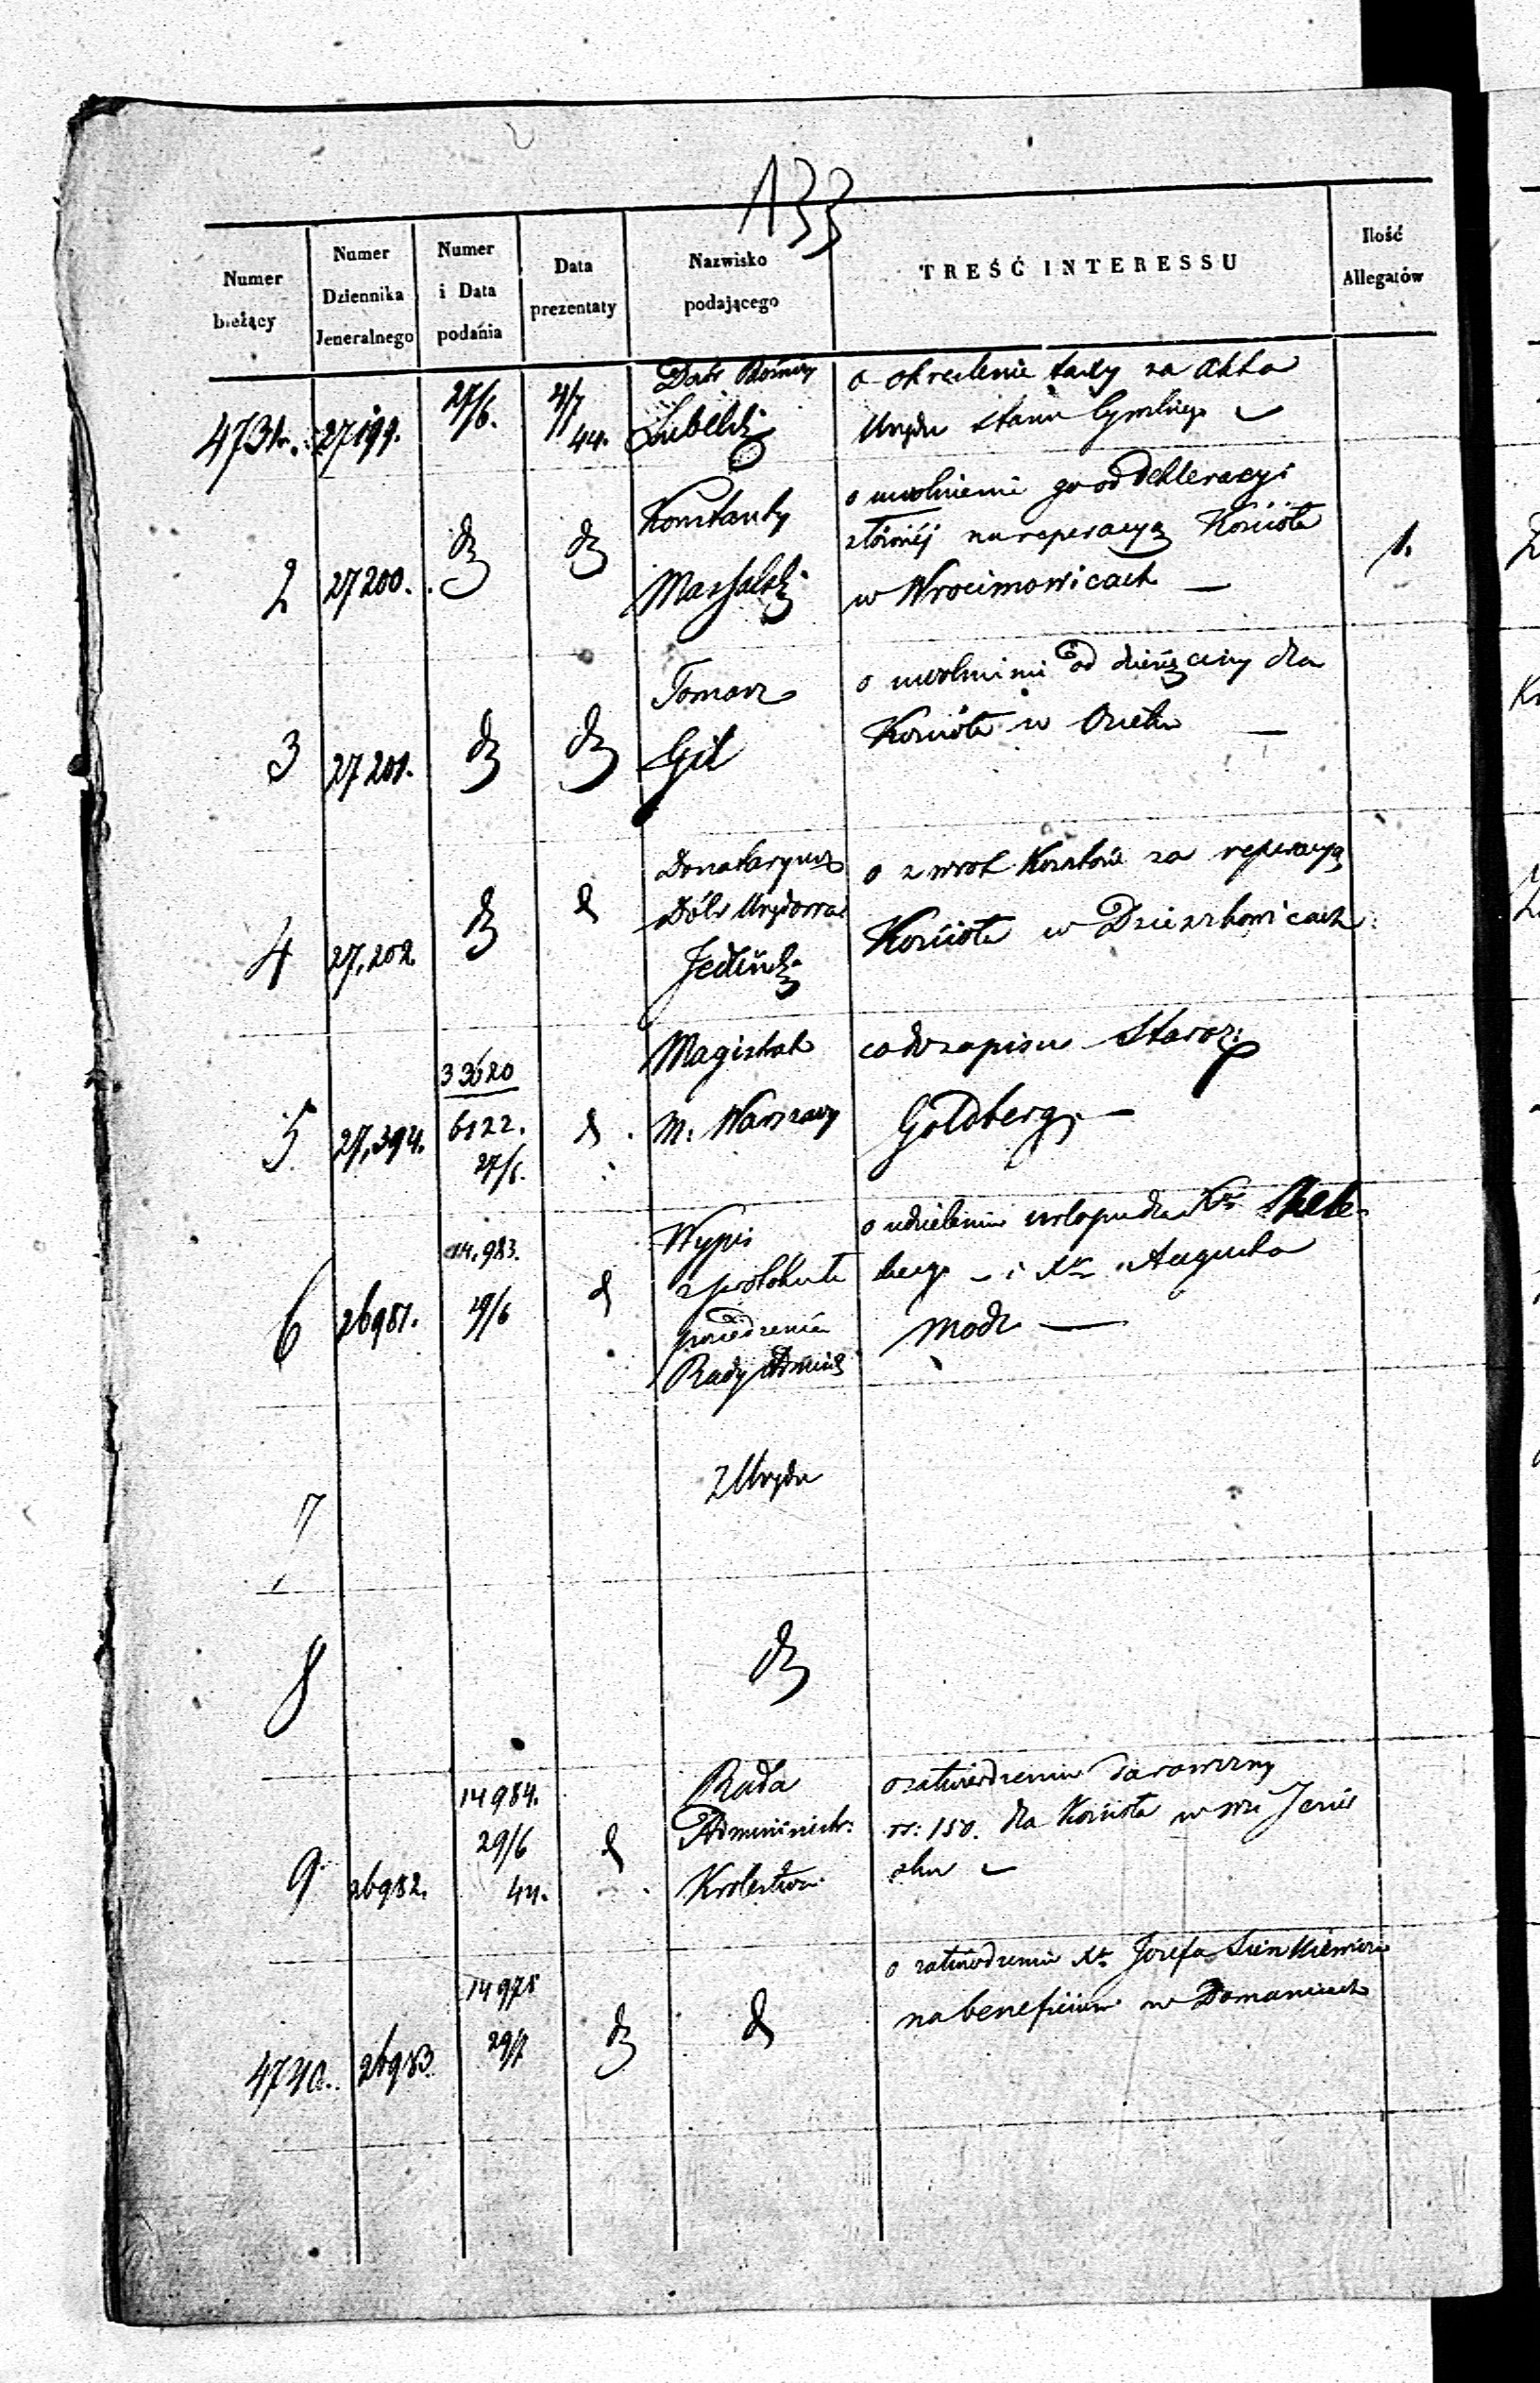 133
Numer bieżący
Numer Dziennika Jeneralnego
Numer i Data podania
Data prezentaty
Nazwisko podającego
TREŚĆ INTERESSU
Ilość Allegatów
4731. 27199. 27/6. 4/7 44. Lubelski
o określenie taxy za Akta
Urzędu Stanu Cywilnego
2 27200. dz dz Konstanty
Marszalski
o uwolnienie go od deklaracyi
złożonej na reperacyą Kościoła
w Wrocimowicach —
1.
3 27201. dz dz Tomasz
Gil
o uwolnieni od dziesięciny dla
Kościoła w —
4 27,202 dz d Donataryusz
Dóbr Urzędowa
Jedliński
o zwrot kosztów za reperacyą
Kościoła w Dzierzkowicach
5 27,394. 33620
6122.
27/6. d
Magistrat
M. Warszawy
co do zapisu Staroz:
Goldberg. —
6 26981. 14,983.
19/6 d
Wypis
z protokułu
posiedzenia
Rady Admin
o udzielenie urlopu dla Xa
i Xa Augusta
Modz —
7 Z Urzędu
8 dz
9 26982. 14984.
29/6
44. d
Rada
Administr:
Królestwa
o zatwierdzenie darowizny
rs: 150. dla Kościoła w
4740. 26983 14978
29/ dz d
o zatwierdzenie Xa Józefa Sienkiewicza
na beneficium w Domanicach